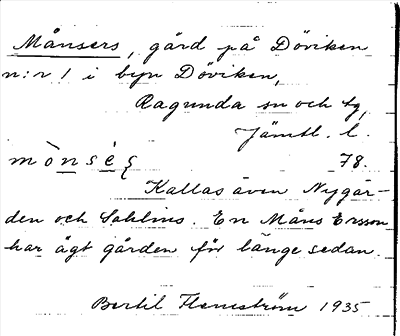 Månsers, gård på Döviken
n:r 1 i byn Döviken,
Ragunda sn och tg,
Jämtl. l.
mònsès 78.
Kallas även Nygår-
den och Sahlins. En Måns Ersson
har ägt gården för länge sedan.
Bertil Flemström 1935